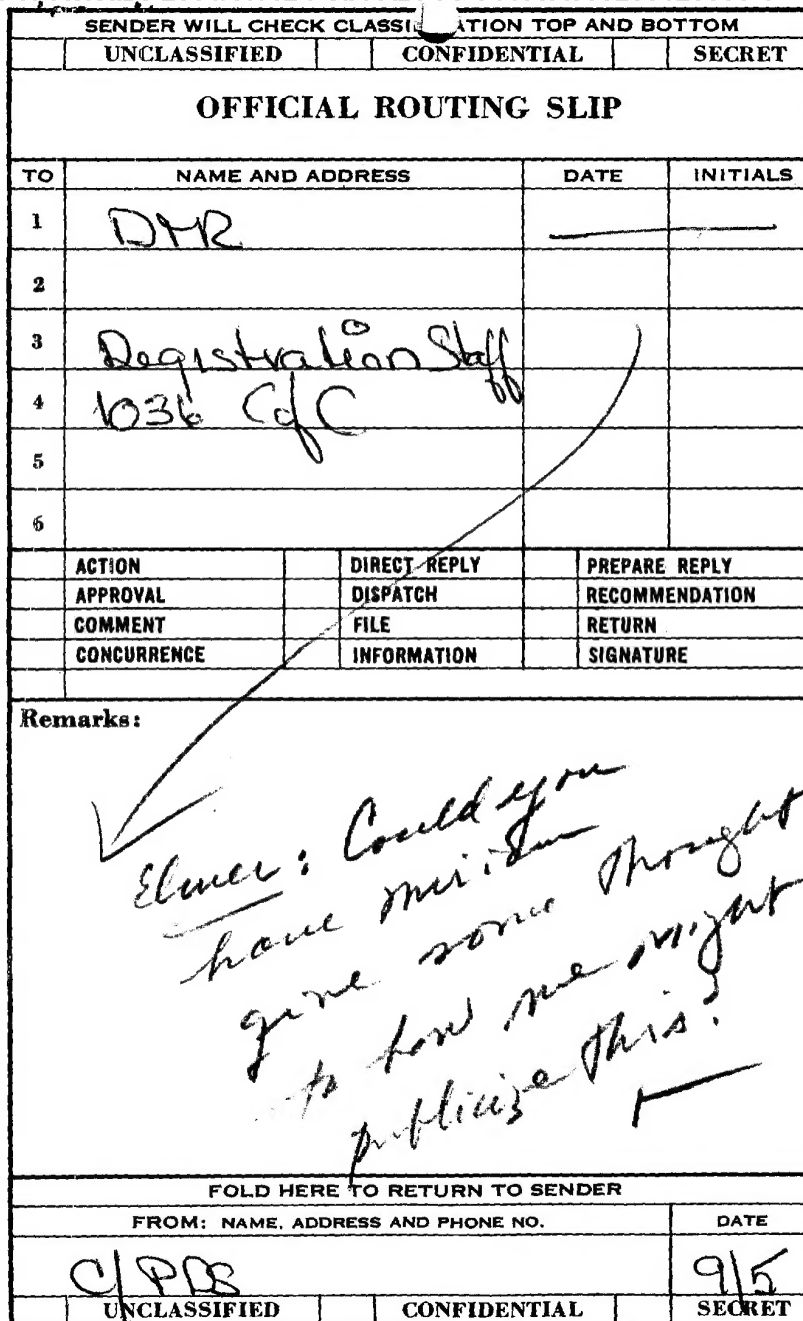 SENDER WILL CHECK CLASSIFICATION TOP AND BOTTOM
UNCLASSIFIED CONFIDENTIAL SECRET
OFFICIAL ROUTING SLIP
TO NAME AND ADDRESS DATE INITIALS
1 DMR
2
3 Registration Staff
4 1036 C of C
5
6
ACTION DIRECT REPLY PREPARE REPLY
APPROVAL DISPATCH RECOMMENDATION
COMMENT FILE RETURN
CONCURRENCE INFORMATION SIGNATURE
Remarks:
Elmer: Could you
have Miriam
give some thought
to how we might
publicize this?
FOLD HERE TO RETURN TO SENDER
FROM: NAME, ADDRESS AND PHONE NO. DATE
C/PDS 9/5
UNCLASSIFIED CONFIDENTIAL SECRET